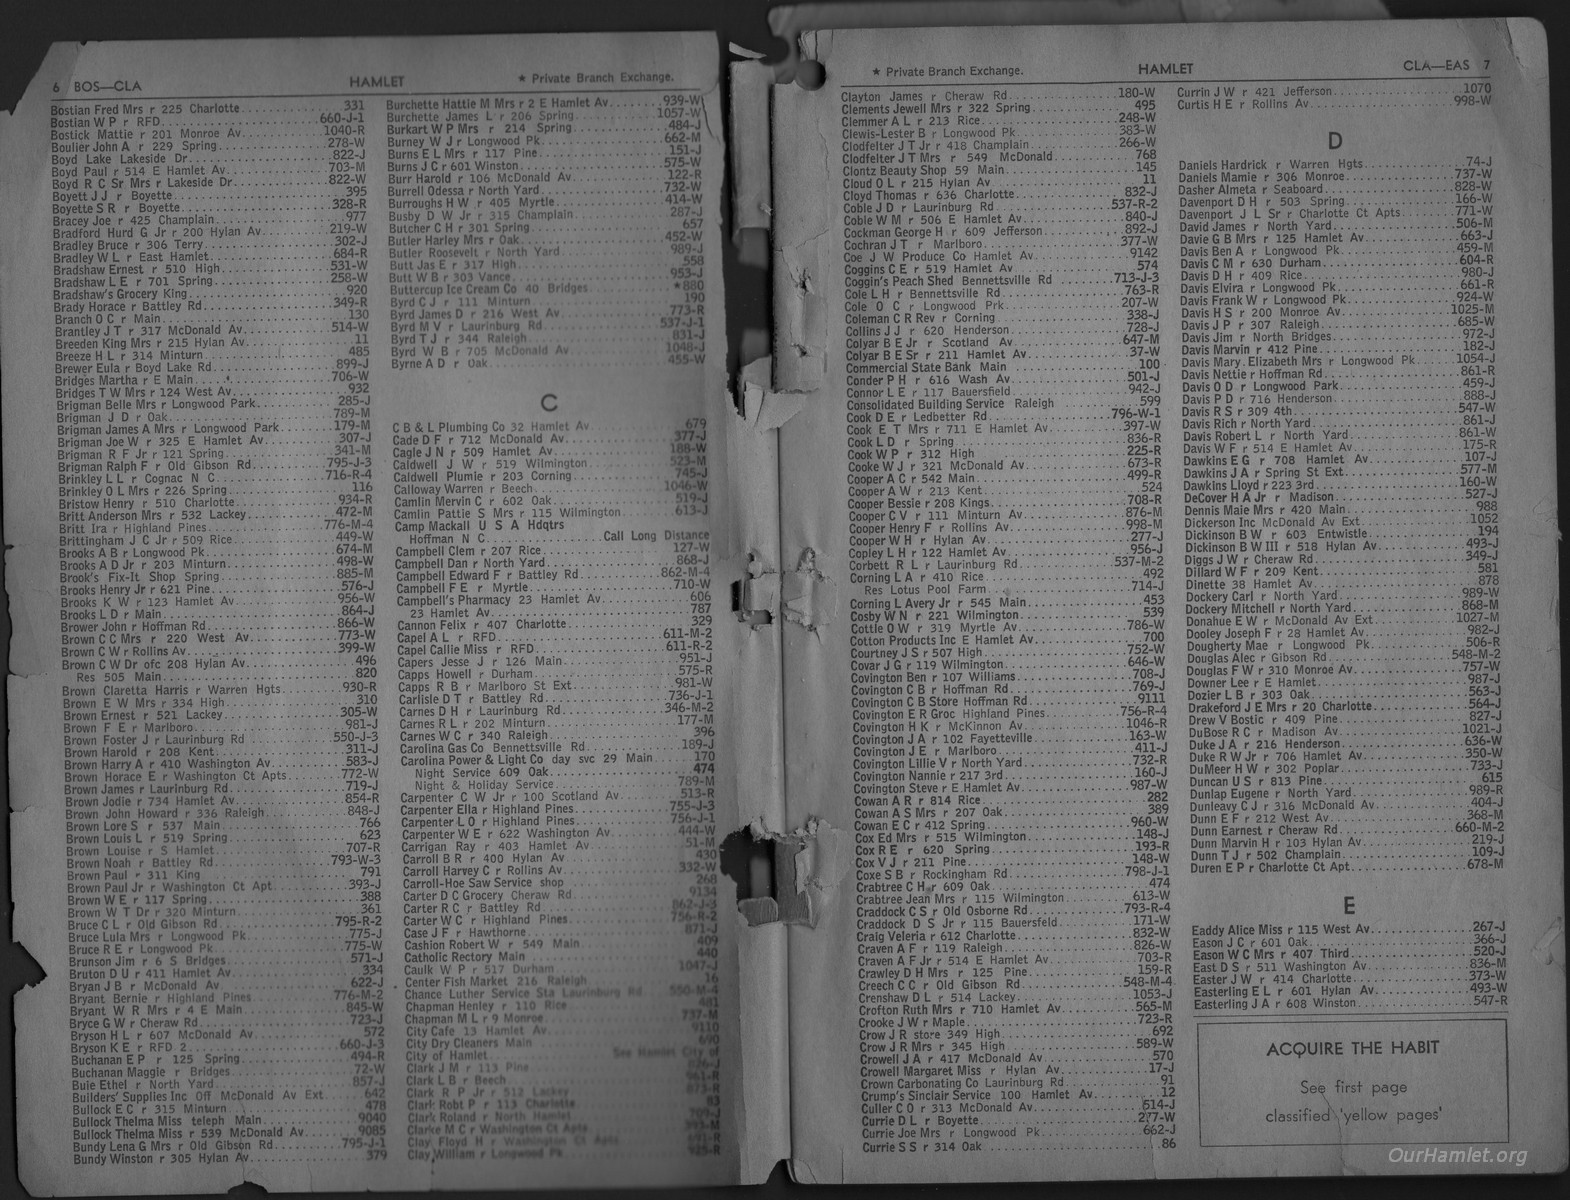 6 BOS—CLA
HAMLET
★ Private Branch Exchange.
Bostian Fred Mrs r 225 Charlotte 331
Bostian W P r RFD 660-J-1
Bostick Mattie r 201 Monroe Av 1040-R
Boulier John A r 229 Spring 278-W
Boyd Lake Lakeside Dr 822-J
Boyd Paul r 514 E Hamlet Av 703-M
Boyd R C Sr Mrs r Lakeside Dr 822-W
Boyett J J r Boyette 395
Boyette S R r Boyette 328-R
Bracey Joe r 425 Champlain 977
Bradford Hurd G Jr r 200 Hylan Av 219-W
Bradley Bruce r 306 Terry 302-J
Bradley W L r East Hamlet 684-R
Bradshaw Ernest r 510 High 531-W
Bradshaw L E r 701 Spring 258-W
Bradshaw's Grocery King 920
Brady Horace r Battley Rd 349-R
Branch O C r Main 130
Brantley J T r 317 McDonald Av 514-W
Breeden King Mrs r 215 Hylan Av 11
Breeze H L r 314 Minturn 485
Brewer Eula r Boyd Lake Rd 899-J
Bridges Martha r E Main 706-W
Bridges T W Mrs r 124 West Av 932
Brigman Belle Mrs r Longwood Park 285-J
Brigman J D r Oak 789-M
Brigman James A Mrs r Longwood Park 179-M
Brigman Joe W r 325 E Hamlet Av 307-J
Brigman R F Jr r 121 Spring 341-M
Brigman Ralph F r Old Gibson Rd 795-J-3
Brinkley L L r Cognac N C 716-R-4
Brinkley O L Mrs r 226 Spring 116
Bristow Henry r 510 Charlotte 934-R
Britt Anderson Mrs r 532 Lackey 472-M
Britt Ira r Highland Pines 776-M-4
Brittingham J C Jr r 509 Rice 449-W
Brooks A B r Longwood Pk 674-M
Brooks A D Jr r 203 Minturn 498-W
Brook's Fix-It Shop Spring 885-M
Brooks Henry Jr r 621 Pine 576-J
Brooks K W r 123 Hamlet Av 956-W
Brooks L D r Main 864-J
Brower John r Hoffman Rd 866-W
Brown C C Mrs r 220 West Av 773-W
Brown C W r Rollins Av 399-W
Brown C W Dr ofc 208 Hylan Av 496
Res 505 Main 820
Brown Claretta Harris r Warren Hgts 930-R
Brown E W Mrs r 334 High 310
Brown Ernest r 521 Lackey 305-W
Brown F E r Marlboro 981-J
Brown Foster J r Laurinburg Rd 550-J-3
Brown Harold r 208 Kent 311-J
Brown Harry A r 410 Washington Av 583-J
Brown Horace E r Washington Ct Apts 772-W
Brown James r Laurinburg Rd 719-J
Brown Jodie r 734 Hamlet Av 854-R
Brown John Howard r 336 Raleigh 848-J
Brown Lore S r 537 Main 766
Brown Louis L r 519 Spring 623
Brown Louise r S Hamlet 707-R
Brown Noah r Battley Rd 793-W-3
Brown Paul r 311 King 791
Brown Paul Jr r Washington Ct Apt 393-J
Brown W E r 117 Spring 388
Brown W T Dr r 320 Minturn 361
Bruce C L r Old Gibson Rd 795-R-2
Bruce Lula Mrs r Longwood Pk 775-J
Bruce R E r Longwood Pk 775-W
Brunson Jim r 6 S Bridges 571-J
Bruton D U r 411 Hamlet Av 334
Bryan J B r McDonald Av 622-J
Bryant Bernie r Highland Pines 776-M-2
Bryant W R Mrs r 4 E Main 845-W
Bryce G W r Cheraw Rd 723-J
Bryson H L r 607 McDonald Av 572
Bryson K E r RFD 2 660-J-3
Buchanan E P r 125 Spring 494-R
Buchanan Maggie r Bridges 72-W
Buie Ethel r North Yard 857-J
Builders' Supplies Inc Off McDonald Av Ext 642
Bullock E C r 315 Minturn 478
Bullock Thelma Miss teleph Main 9040
Bullock Thelma Miss r 539 McDonald Av 9085
Bundy Lena G Mrs r Old Gibson Rd 795-J-1
Bundy Winston r 305 Hylan Av 379
Burchette Hattie M Mrs r 2 E Hamlet Av 939-W
Burchette James L r 206 Spring 1057-W
Burkart W P Mrs r 214 Spring 484-J
Burney W J r Longwood Pk 662-M
Burns E L Mrs r 117 Pine 151-J
Burns J C r 601 Winston 575-W
Burr Harold r 106 McDonald Av 122-R
Burrell Odessa r North Yard 732-W
Burroughs H W r 405 Myrtle 414-W
Busby D W Jr r 315 Champlain 287-J
Butcher C H r 301 Spring 657
Butler Harley Mrs r Oak 452-W
Butler Roosevelt r North Yard 989-J
Butt Jas E r 317 High 558
Butt W B r 303 Vance 953-J
Buttercup Ice Cream Co 40 Bridges ★880
Byrd C J r 111 Minturn 190
Byrd James D r 216 West Av 773-R
Byrd M V r Laurinburg Rd 537-J-1
Byrd T J r 344 Raleigh 831-J
Byrd W B r 705 McDonald Av 1048-J
Byrne A D r Oak 455-W
C
C B & L Plumbing Co 32 Hamlet Av 679
Cade D F r 712 McDonald Av 377-J
Cagle J N r 509 Hamlet Av 188-W
Caldwell J W r 519 Wilmington 523-M
Caldwell Plumie r 203 Corning 745-J
Calloway Warren r Beech 1046-W
Camlin Mervin C r 602 Oak 519-J
Camlin Pattie S Mrs r 115 Wilmington 613-J
Camp Mackall U S A Hdqtrs
Hoffman N C Call Long Distance
Campbell Clem r 207 Rice 127-W
Campbell Dan r North Yard 868-J
Campbell Edward F r Battley Rd 862-M-4
Campbell F E r Myrtle 710-W
Campbell's Pharmacy 23 Hamlet Av 606
23 Hamlet Av 787
Cannon Felix r 407 Charlotte 329
Capel A L r RFD 611-M-2
Capel Callie Miss r RFD 611-R-2
Capers Jesse J r 126 Main 951-J
Capps Howell r Durham 575-R
Capps R B r Marlboro St Ext 981-W
Carlisle D T r Battley Rd 736-J-1
Carnes D H r Laurinburg Rd 346-M-2
Carnes R L r 202 Minturn 177-M
Carnes W C r 340 Raleigh 396
Carolina Gas Co Bennettsville Rd 189-J
Carolina Power & Light Co day svc 29 Main 170
Night Service 609 Oak 474
Night & Holiday Service 789-M
Carpenter C W Jr r 100 Scotland Av 513-R
Carpenter Ella r Highland Pines 755-J-3
Carpenter L O r Highland Pines 756-J-1
Carpenter W E r 622 Washington Av 444-W
Carrigan Ray r 403 Hamlet Av 51-M
Carroll B R r 400 Hylan Av 430
Carroll Harvey C r Rollins Av 332-W
Carroll-Hoe Saw Service shop 268
Carter D C Grocery Cheraw Rd 9134
Carter R C r Battley Rd 862-J-3
Carter W C r Highland Pines 756-R-2
Case J F r Hawthorne 871-J
Cashion Robert W r 549 Main 409
Catholic Rectory Main 440
Caulk W P r 517 Durham 1047-J
Center Fish Market 216 Raleigh 16
Chance Luther Service Sta Laurinburg Rd 550-M-4
Chapman Henley r 110 Rice 481
Chapman M L r 9 Monroe 737-M
City Cafe 13 Hamlet Av 9110
City Dry Cleaners Main 690
City of Hamlet See Hamlet City of
Clark J M r 113 Pine
Clark L B r Beech
Clark R P Jr r 512 Lackey 873-R
Clark Robt P r 113 Charlotte 83
Clark Roland r North Hamlet
Clarke M C r Washington Ct Apts
Clay Floyd H r Washington Ct Apts
Clay William r Longwood Pk
★ Private Branch Exchange.
HAMLET
CLA—EAS 7
Clayton James r Cheraw Rd 180-W
Clements Jewell Mrs r 322 Spring 495
Clemmer A L r 213 Rice 248-W
Clewis-Lester B r Longwood Pk 383-W
Clodfelter J T Jr r 418 Champlain 266-W
Clodfelter J T Mrs r 549 McDonald 768
Clontz Beauty Shop 59 Main 145
Cloud O L r 215 Hylan Av 11
Cloyd Thomas r 636 Charlotte 832-J
Coble J D r Laurinburg Rd 537-R-2
Coble W M r 506 E Hamlet Av 840-J
Cockman George H r 609 Jefferson 892-J
Cochran J T r Marlboro 377-W
Coe J W Produce Co Hamlet Av 9142
Coggins C E r 519 Hamlet Av 574
Coggin's Peach Shed Bennettsville Rd 713-J-3
Cole L H r Bennettsville Rd 763-R
Cole O C r Longwood Prk 207-W
Coleman C R Rev r Corning 338-J
Collins J J r 620 Henderson 728-J
Colyar B E Jr r Scotland Av 647-M
Colyar B E Sr r 211 Hamlet Av 37-W
Commercial State Bank Main 100
Conder P H r 616 Wash Av 501-J
Connor L E r 117 Bauersfield 942-J
Consolidated Building Service Raleigh 599
Cook D E r Ledbetter Rd 796-W-1
Cook E T Mrs r 711 E Hamlet Av 397-W
Cook L D r Spring 836-R
Cook W P r 312 High 225-R
Cooke W J r 321 McDonald Av 673-R
Cooper A C r 542 Main 499-R
Cooper A W r 213 Kent 524
Cooper Bessie r 208 Kings 708-R
Cooper C V r 111 Minturn Av 876-M
Cooper Henry F r Rollins Av 998-M
Cooper W H r Hylan Av 277-J
Copley L H r 122 Hamlet Av 956-J
Corbett R L r Laurinburg Rd 537-M-2
Corning L A r 410 Rice 492
Res Lotus Pool Farm 714-J
Corning L Avery Jr r 545 Main 453
Cosby W N r 221 Wilmington 539
Cottle O W r 319 Myrtle Av 786-W
Cotton Products Inc E Hamlet Av 700
Courtney J S r 507 High 752-W
Covar J G r 119 Wilmington 646-W
Covington Ben r 107 Williams 708-J
Covington C B r Hoffman Rd 769-J
Covington C B Store Hoffman Rd 9111
Covington E R Groc Highland Pines 756-R-4
Covington H K r McKinnon Av 1046-R
Covington J A r 102 Fayetteville 163-W
Covington J E r Marlboro 411-J
Covington Lillie V r North Yard 732-R
Covington Nannie r 217 3rd 160-J
Covington Steve r E Hamlet Av 987-W
Cowan A R r 814 Rice 282
Cowan A S Mrs r 207 Oak 389
Cowan E C r 412 Spring 960-W
Cox Ed Mrs r 515 Wilmington 148-J
Cox R E r 620 Spring 193-R
Cox V J r 211 Pine 148-W
Coxe S B r Rockingham Rd 798-J-1
Crabtree C H r 609 Oak 474
Crabtree Jean Mrs r 115 Wilmington 613-W
Craddock C S r Old Osborne Rd 793-R-4
Craddock D S Jr r 115 Bauersfeld 171-W
Craig Veleria r 612 Charlotte 832-W
Craven A F r 119 Raleigh 826-W
Craven A F Jr r 514 E Hamlet Av 703-R
Crawley D H Mrs r 125 Pine 159-R
Creech C C r Old Gibson Rd 548-M-4
Crenshaw D L r 514 Lackey 1053-J
Crofton Ruth Mrs r 710 Hamlet Av 565-M
Crooke J W r Maple 723-R
Crow J R store 349 High 692
Crow J R Mrs r 345 High 589-W
Crowell J A r 417 McDonald Av 570
Crowell Margaret Miss r Hylan Av 17-J
Crown Carbonating Co Laurinburg Rd 91
Crump's Sinclair Service 100 Hamlet Av 12
Culler C O r 313 McDonald Av 614-J
Currie D L r Boyette 277-W
Currie Joe Mrs r Longwood Pk 662-J
Currie S S r 314 Oak 86
Currin J W r 421 Jefferson 1070
Curtis H E r Rollins Av 998-W
D
Daniels Hardrick r Warren Hgts 74-J
Daniels Mamie r 306 Monroe 737-W
Dasher Almeta r Seaboard 828-W
Davenport D H r 503 Spring 166-W
Davenport J L Sr r Charlotte Ct Apts 771-W
David James r North Yard 506-M
Davie G B Mrs r 125 Hamlet Av 663-J
Davis Ben A r Longwood Pk 459-M
Davis C M r 630 Durham 604-R
Davis D H r 409 Rice 980-J
Davis Elvira r Longwood Pk 661-R
Davis Frank W r Longwood Pk 924-W
Davis H S r 200 Monroe Av 1025-M
Davis J P r 307 Raleigh 685-W
Davis Jim r North Bridges 972-J
Davis Marvin r 412 Pine 182-J
Davis Mary Elizabeth Mrs r Longwood Pk 1054-J
Davis Nettie r Hoffman Rd 861-R
Davis O D r Longwood Park 459-J
Davis P D r 716 Henderson 888-J
Davis R S r 309 4th 547-W
Davis Rich r North Yard 861-J
Davis Robert L r North Yard 861-W
Davis W F r 514 E Hamlet Av 175-R
Dawkins E G r 708 Hamlet Av 107-J
Dawkins J A r Spring St Ext 577-M
Dawkins Lloyd r 223 3rd 160-W
DeCover H A Jr r Madison 527-J
Dennis Maie Mrs r 420 Main 988
Dickerson Inc McDonald Av Ext 1052
Dickinson B W r 603 Entwistle 194
Dickinson B W III r 518 Hylan Av 493-J
Diggs J W r Cheraw Rd 349-J
Dillard W F r 209 Kent 581
Dinette 38 Hamlet Av 878
Dockery Carl r North Yard 989-W
Dockery Mitchell r North Yard 868-M
Donahue E W r McDonald Av Ext 1027-M
Dooley Joseph F r 28 Hamlet Av 982-J
Dougherty Mae r Longwood Pk 506-R
Douglas Alec r Gibson Rd 548-M-2
Douglas F W r 310 Monroe Av 757-W
Downer Lee r E Hamlet 987-J
Dozier L B r 303 Oak 563-J
Drakeford J E Mrs r 20 Charlotte 564-J
Drew V Bostic r 409 Pine 827-J
DuBose R C r Madison Av 1021-J
Duke J A r 216 Henderson 636-W
Duke R W Jr r 706 Hamlet Av 350-W
DuMeer H W r 302 Poplar 733-J
Duncan U S r 813 Pine 615
Dunlap Eugene r North Yard 989-R
Dunleavy C J r 316 McDonald Av 404-J
Dunn E F r 212 West Av 368-M
Dunn Earnest r Cheraw Rd 660-M-2
Dunn Marvin H r 103 Hylan Av 219-J
Dunn T J r 502 Champlain 109-J
Duren E P r Charlotte Ct Apt 678-M
E
Eaddy Alice Miss r 115 West Av 267-J
Eason J C r 601 Oak 366-J
Eason W C Mrs r 407 Third 520-J
East D S r 511 Washington Av 836-M
Easter J W r 414 Charlotte 373-W
Easterling E L r 601 Hylan Av 493-W
Easterling J A r 608 Winston 547-R
ACQUIRE THE HABIT
See first page
classified 'yellow pages'
OurHamlet.org